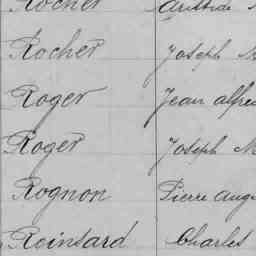 Rocher Aristide
Rocher Joseph M
Roger Jean alfre
Roger Joseph M
Rognon Pierre Aug
Roinsard Charles